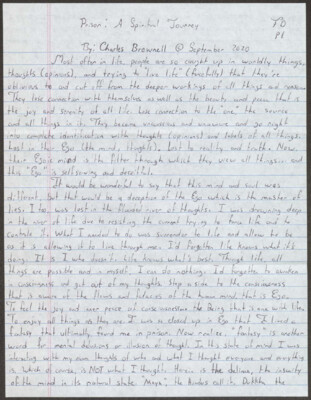 Prison: A Spiritual Journey
P1
By: Charles Brownell @ September 2020
Most often in life people are so caught up in worldly things,
thoughts (opinions), and trying to "live life" (forcefully) that they're
oblivious to and cut off from the deeper workings of all things and reason.
They lose connection with themselves as well as the beauty and power that is
the joy and serenity of all life. Lose connection to "the one" the universe
and all things in it. They become unconscious and unaware and go right
into complete identification with thoughts (opinions) and labels of all things.
Lost in their Ego (the mind, thoughts). Lost to reality and truth. Now,
their Ego's mind is the filter through which they view all things and
this "Ego" is self serving and deceitful.
It would be wonderful to say that this mind and soul was
different, but that would be a deception of the Ego which is the master of
lies! I too was lost in the river of thoughts. I was drowning deep
in the river of life due to resisting the current trying to force life and to
control it. What I needed to do was surrender to life and allow to be
as it is allowing it to live through me. I'd forgotten life knows what it's
doing. It is I who doesn't. Life knows what's best. Through life, all
things are possible and in myself I can do nothing. I'd forgotten to
in consciousness and get out of my thoughts. Step a side to the consciousness
that is aware of the flaws and fallacies of the human mind that is Ego.
To feel the joy and inner peace of consciousness the being that is one with life.
To enjoy all things as they are. I was so closed up in Ego that I lived a
fantasy that ultimately found me in prison. Now realize "fantasy" is another
word for mental delusions or illusion of thought. In this state of mind I was
interacting with my own thoughts of who and what I thought everyone and everything
is, which of course is NOT what I thought. Here is the delusion, the insanity
of the mind in its natural state "Maya", the Hindus call it. Dukkha the